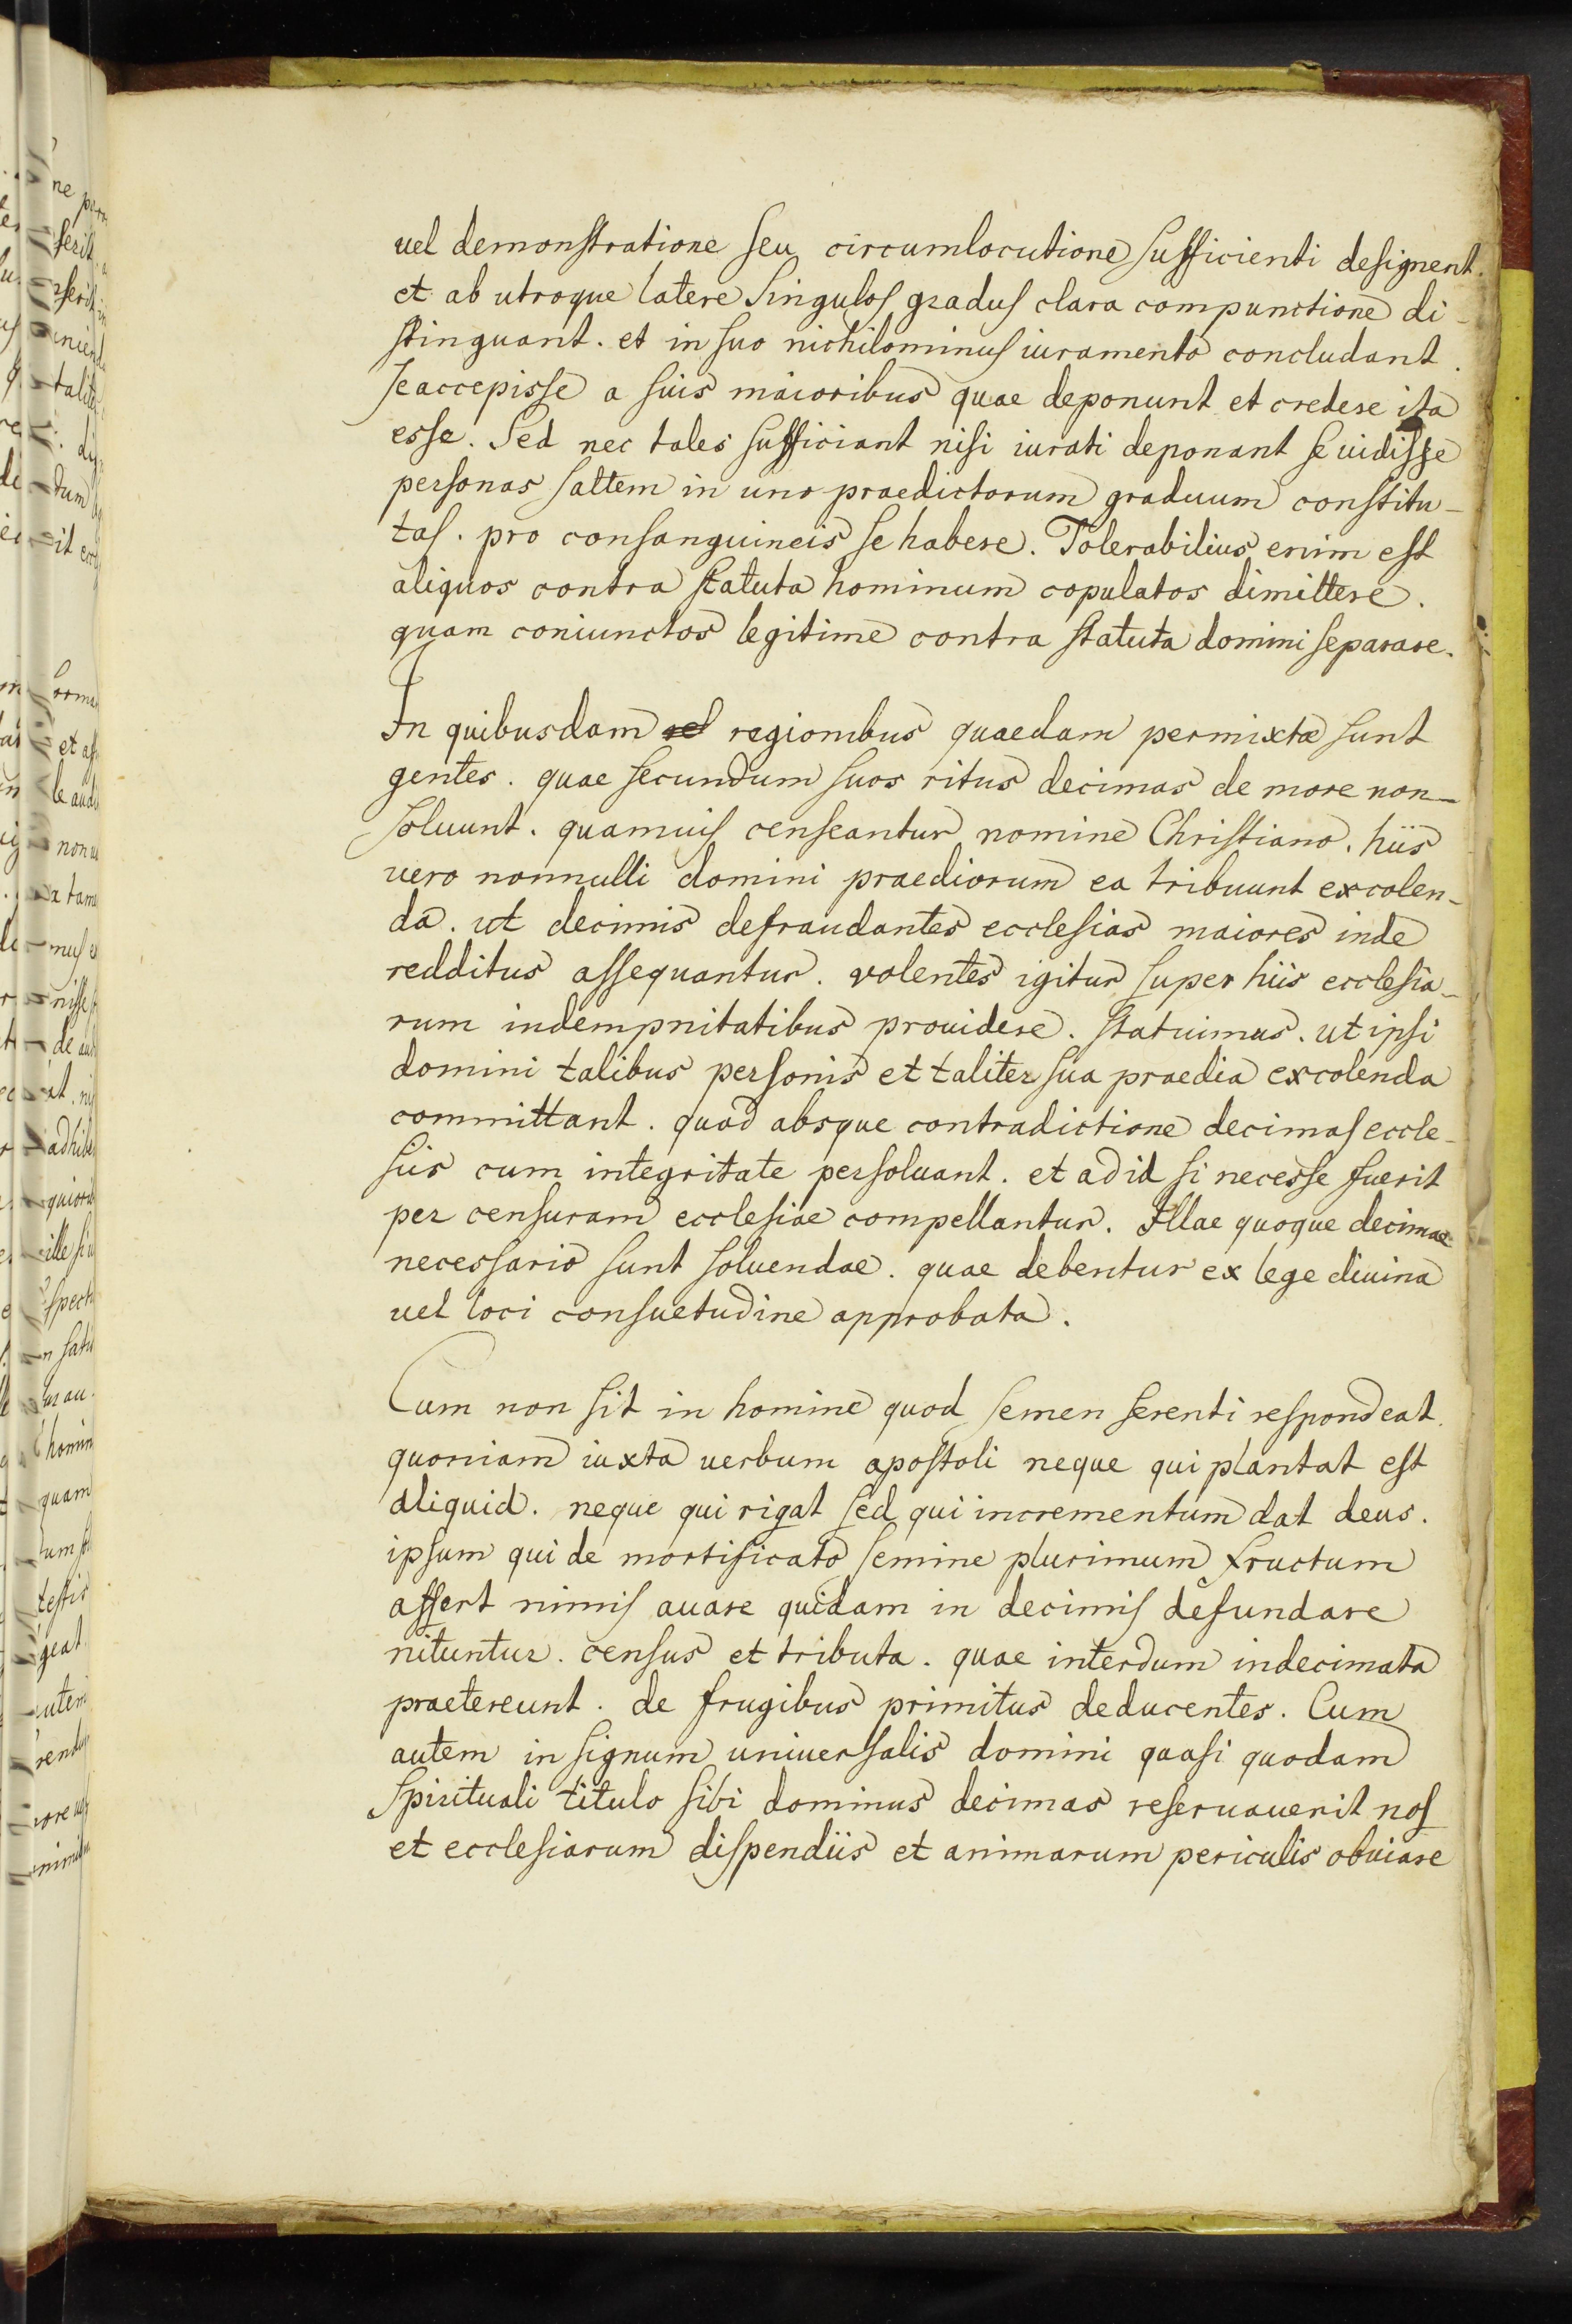 uel demonstratione seu circumlocutione sufficienti designent.
et ab utroque latere singulos gradus clara compunctione di-
stinguant. et in suo nichilominus iuramento concludant.
se accepisse a suis maioribus quae deponunt et credere ita
esse. Sed nec tales sufficiant nisi iurati deponant se uidisse
personas saltem in uno praedictorum graduum constitu-
tas. pro consanguineis se habere. Tolerabilius enim est
aliquos contra statuta hominum copulatos dimittere.
quam coniunctos legitime contra statuta domini separare.
In quibusdam regionibus quaedam permixtae sunt
gentes. quae secundum suos ritus decimas de more non-
soluunt. quamuis censeantur nomine Christiano. hiis
uero nonnulli domini praediorum ea tribuunt excolen-
da. ut decimis defraudantes ecclesias maiores inde
redditus assequantur. volentes igitur super hiis ecclesia-
rum indempnitatibus prouidere. statuimus. ut ipsi
domini talibus personis et taliter sua praedia excolenda
committant. quod absque contradictione decimas eccle-
siis cum integritate persoluant. et ad id si necesse fuerit
per censuram ecclesiae compellantur. Illae quoque decimae
necessario sunt soluendae. quae debentur ex lege diuina
uel loci consuetudine approbata.
Cum non sit in homine quod semen serenti respondeat.
quoniam iuxta uerbum apostoli neque qui plantat est
aliquid. neque qui rigat sed qui incrementum dat deus.
ipsum qui de mortificato semine plurimum fructum
affert nimis auare quidam in decimis defundare
nituntur. census et tributa. quae interdum indecimata
praetereunt. de frugibus primitus deducentes. Cum
autem in signum uniuersalis domini quasi quodam
spirituali titulo sibi dominus decimas reseruauerit nos
et ecclesiarum dispendiis et animarum periculis obuiare